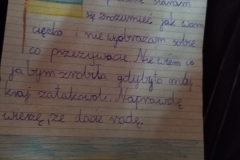 staram
się zrozumieć jak wam
ciężko i nie wyobrażam sobie
co przeżywacie. Nie wiem co
ja bym zrobiła gdyby to mój
kraj zatakowali. Naprawdę
wierzę, że dacie radę.